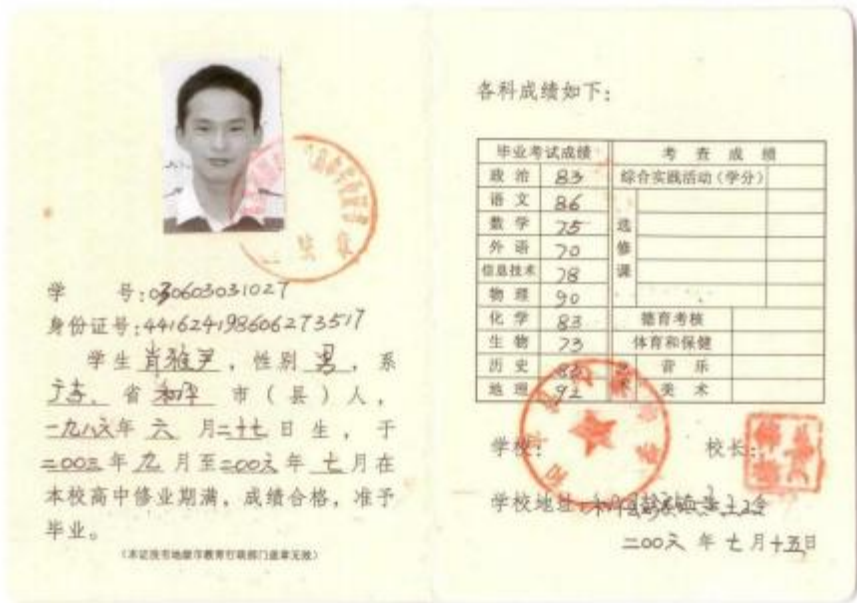 学 号:030603031027
身份证号:441624198606273517
学生 肖雅 ,性别 男 ,系
广东 省 和平 市(县)人,
一九八六年 六 月二十七日生,于
二00三年 九 月至二00六年 七 月在
本校高中修业期满,成绩合格,准予
毕业。
(本证没有地级市教育行政部门盖章无效)
各科成绩如下:
毕业考试成绩 考 查 成 绩
政 治 83 综合实践活动(学分)
语 文 86
数 学 75 选
外 语 70 修
信息技术 78 课
物 理 90
化 学 83 德育考核
生 物 73 体育和保健
历 史 音 乐
地 理 92 美 术
学校: 校长:
学校地址:
二00六 年 七 月十五日